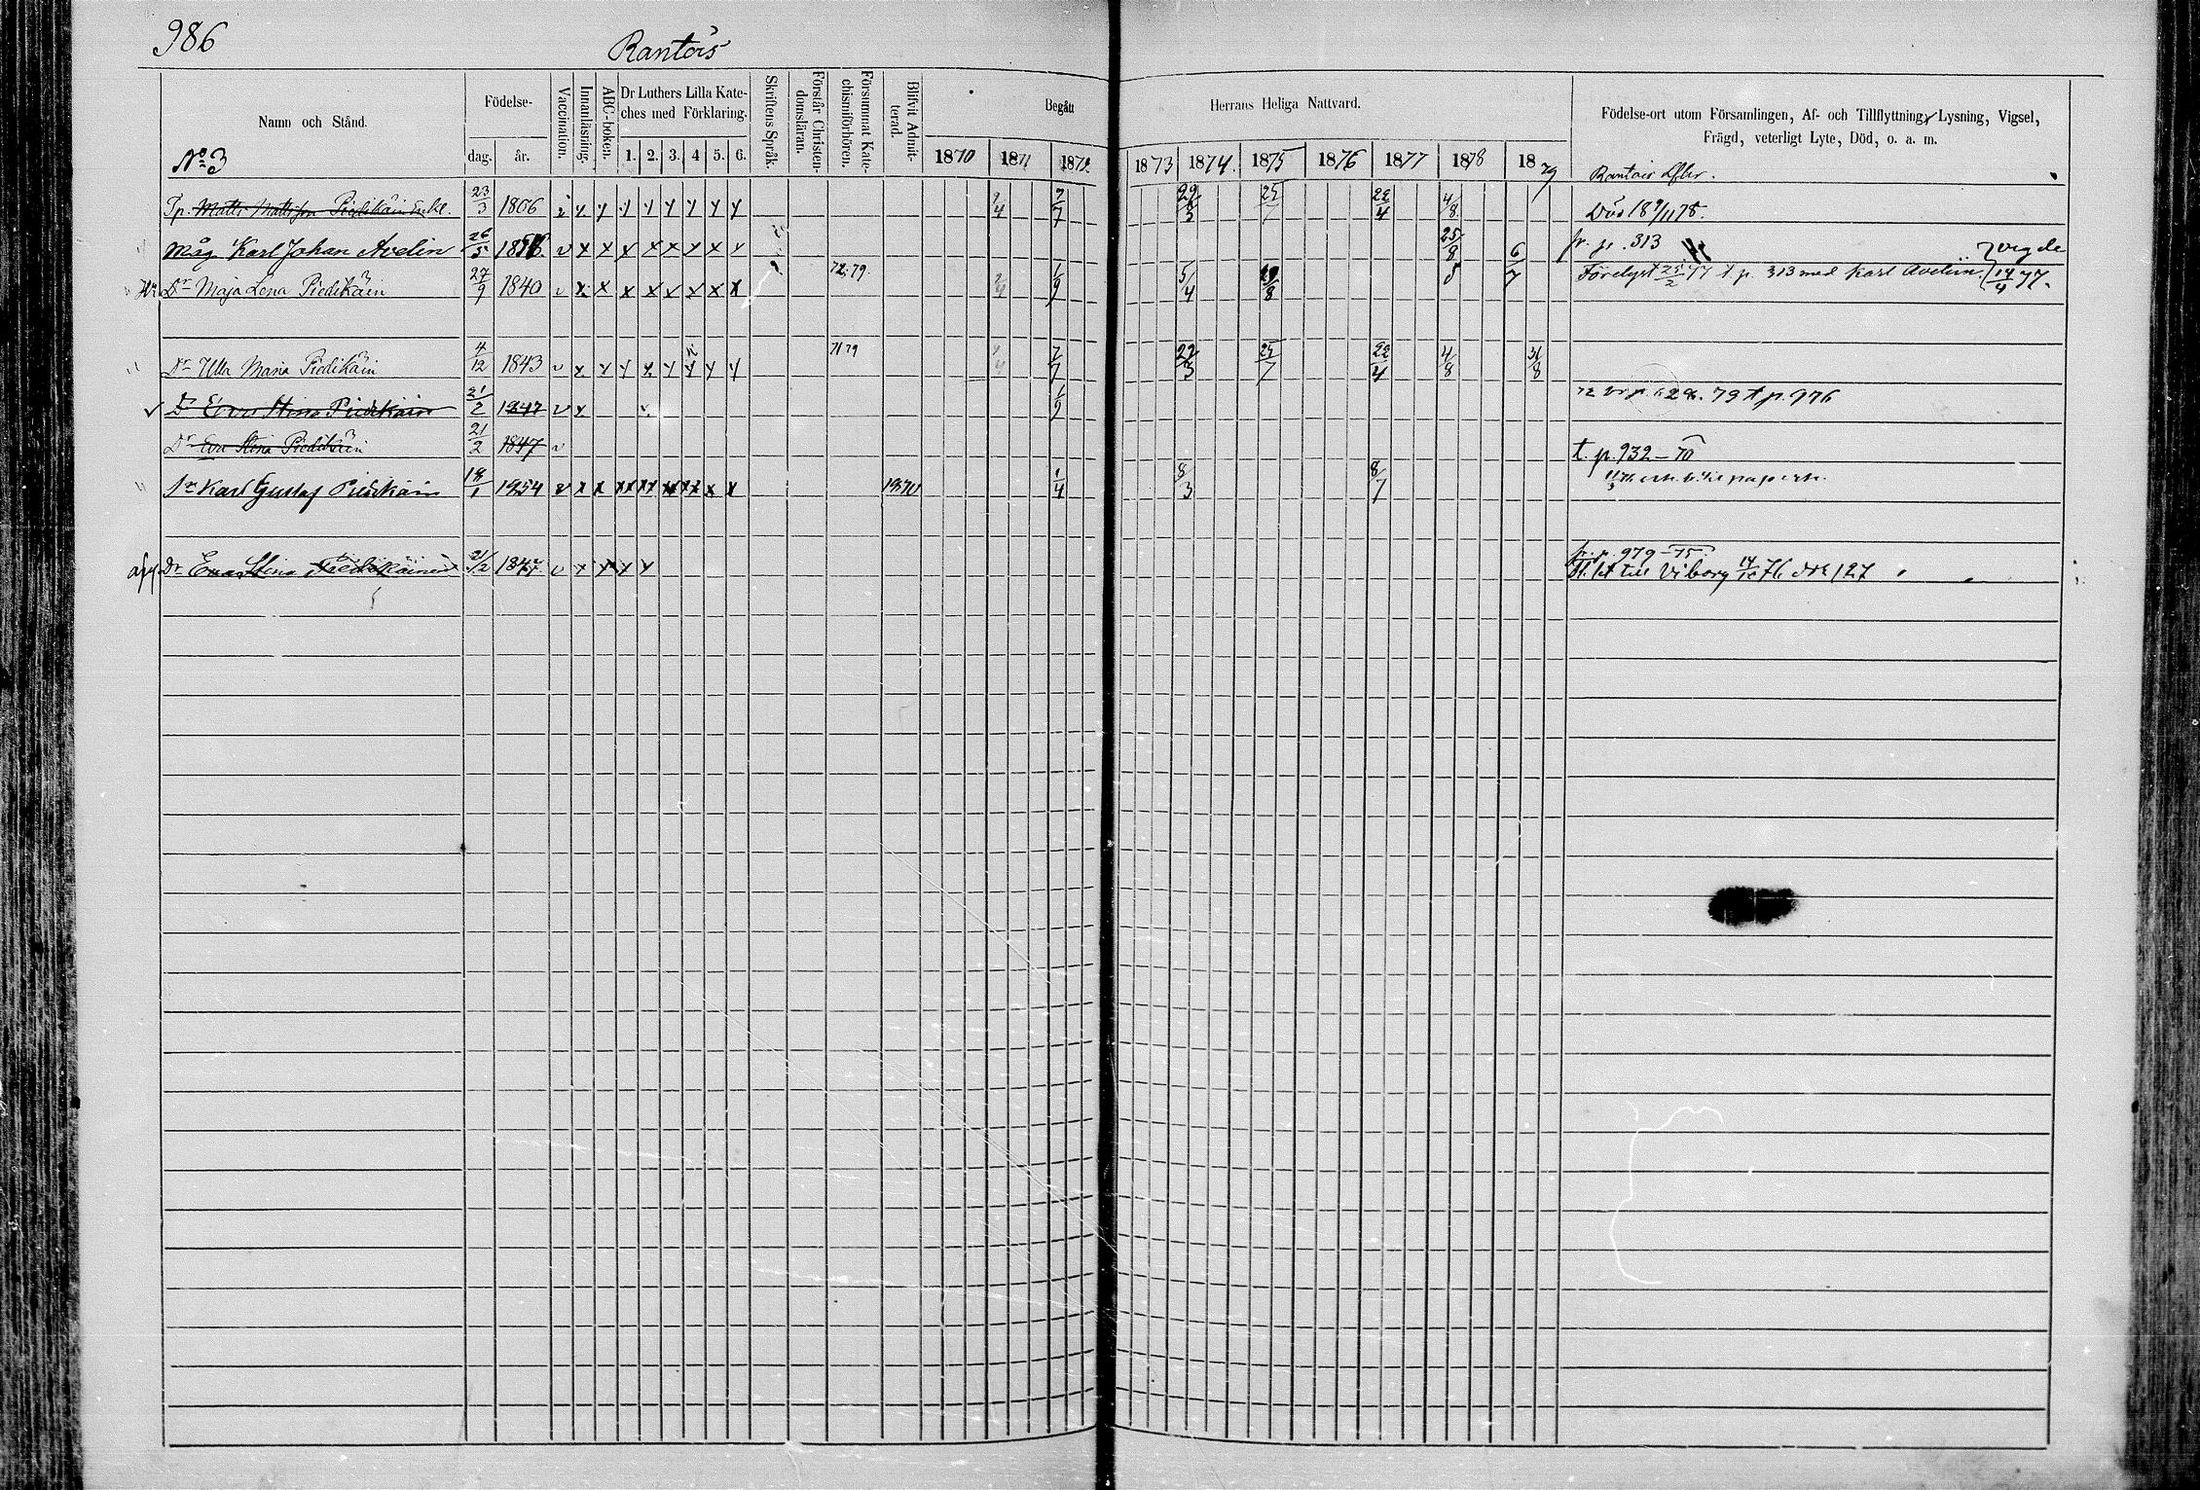 986
Rantois
Namn och Stånd.
Födelse-
dag.
år.
Vaccination.
Innanläsning.
ABC-boken.
Dr Luthers Lilla Kate-
ches med Förklaring.
1. 2. 3. 4. 5. 6.
Skriftens Språk.
Förstår Christen-
domsläran.
Försummat Kate-
chismiförhören.
Blifvit Admit-
terad.
Begått
Herrans Heliga Nattvard.
1870 1871 1872 1873 1874 1875 1876 1877 1878 1879
Födelse-ort utom Församlingen, Af- och Tillflyttning, Lysning, Vigsel,
Frägd, veterligt Lyte, Död, o. a. m.
No 3
Matts Mattsson Piedikäin Enkl. 23/3 1806 7/7 22/3 25/7 22/4 4/8 Död 18 9/11 78.
Måg Karl Johan Avelin 26/5 v x x x x x x x 25/8 6/7 fr. p. 313 vigde
Dr Maja Lena Piedikäin 27/9 1840 v 72.79. 1/9 5/4 19/8 t p. 313 med Karl Avelin 14/4 77.
Dr Ulla Maria Piedikäin 4/12 1843 v 71 79 7/7 22/3 25/7 22/4 4/8 31/8
Dr Eva Stina Piedikäin 21/2 1847 v x 1/9 79 t p. 976
Dr Eva Stina Piedikäin 21/2 1847 v t. p. 932 – 70
Sn Karl Gustaf Piedikäin 18/1 1854 v x x 1870 1/4 8/3 8/7
Dr Eva Stina Piedikäinen 21/2 1847 v x fr. p. 979 – 75.
till Viborg 14/10 76 127